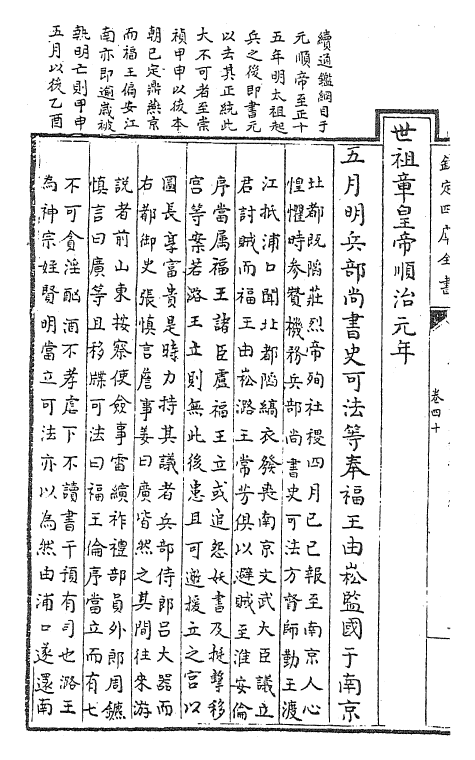 欽定四庫全書
卷四十
續通鑑綱目于
元順帝至正十
五年明太祖起
兵之後即書元
以去其正統此
大不可者至崇
禎甲申以後本
朝已定鼎燕京
而福王偏安江
南亦即遒歲被
執明亡則甲申
五月以後乙酉
世祖章皇帝順治元年
五月明兵部尚書史可法等奉福王由崧監國于南京
北都既陷莊烈帝殉社稷四月己巳報至南京人心
惶懼時參贊機務兵部尚書史可法方督師勤王渡
江抵浦口聞北都陷縞衣發喪南京文武大臣議立
君討賊而福王由崧潞王常芳俱以避賊至淮安倫
序當屬福王諸臣慮福王立或追怨妖書及挺擊移
宮等案若潞王立則無此後患且可邀援立之宮以
圖長享富貴是時力持其議者兵部侍郎呂大器而
右都御史張慎言詹事姜曰廣皆然之其間往來游
說者前山東按察使僉事雷縯祚禮部員外郎周鑣
慎言曰廣等且移牒可法曰福王倫序當立而有七
不可貪淫酗酒不孝虐下不讀書干預有司也潞王
為神宗姪賢明當立可法亦以為然由浦口遂還南